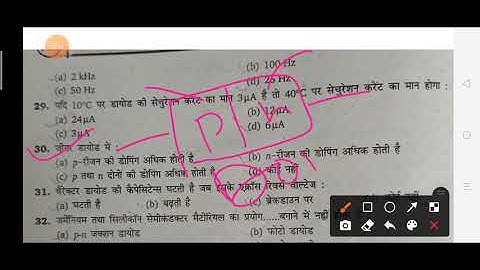 (a) 2 kHz (b) 100 Hz
(c) 50 Hz (d) 25 Hz
29. यदि 10°C पर डायोड की सेचुरेशन करंट का मान 3μA है तो 40°C पर सेचुरेशन करेंट का मान होगा :
(a) 24μA (b) 12μA
(c) 3μA (d) 6μA
30. जीनर डायोड में :
(a) p-रीजन की डोपिंग अधिक होती है (b) n-रीजन की डोपिंग अधिक होती है
(c) p तथा n दोनों की डोपिंग अधिक होती है (d) कोई नहीं
31. वैरेक्टर डायोड की कैपेसिटेन्स घटती है जब इसके एक्रॉस रिवर्स वोल्टेज :
(a) घटती है (b) बढ़ती है (c) ब्रेकडाउन पर
32. जर्मेनियम तथा सिलीकॉन सेमीकंडक्टर मैटीरियल का प्रयोग.....बनाने में नहीं
(a) p-n जंक्शन डायोड (b) फोटो डायोड
P N